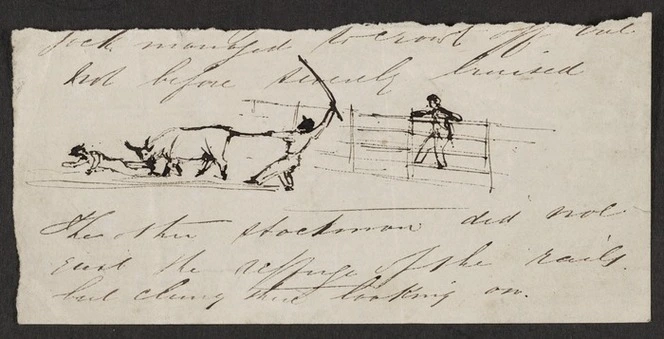 Jock managed to crawl off but
not before severely bruised
The other stockman did not
quit the reffuge of the rails.
but clung there looking on.